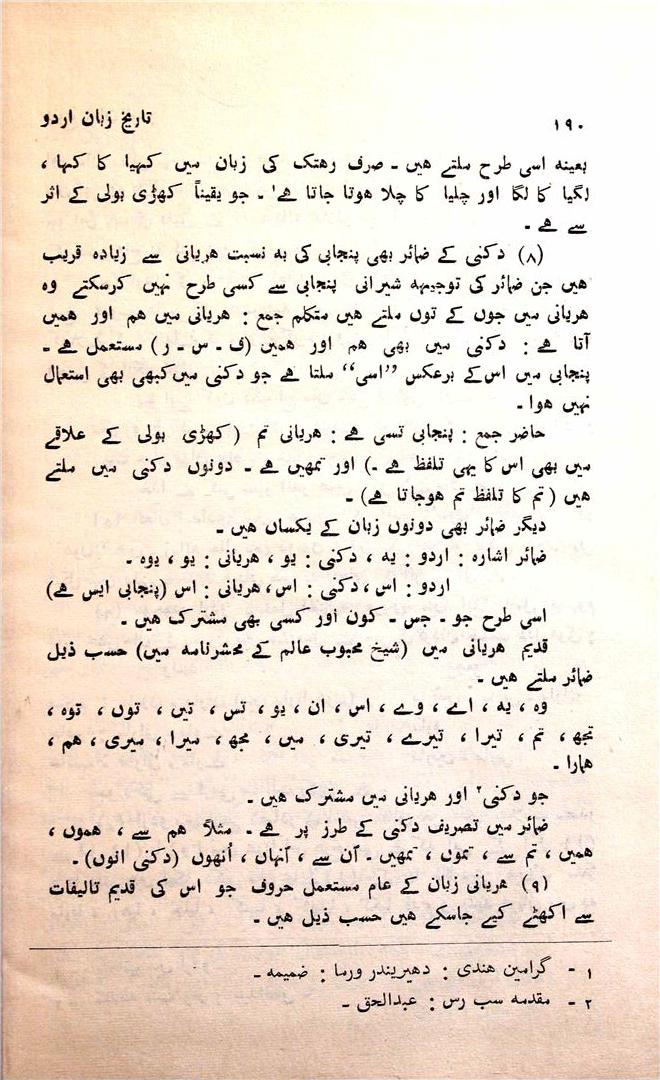 ۱۹۰ تاریخ زبان اردو
بعینہ اسی طرح ملتے ھیں ۔ صرف رھتک کی زبان میں کہیا کا کہا ،
لگیا کا لگا اور چلیا کا چلا ھوتا جاتا ھے¹ ۔ جو یقیناً کھڑی بولی کے اثر
سے ھے ۔
(۸) دکنی کے ضمائر بھی پنجابی کی بہ نسبت ھریانی سے زیادہ قریب
ھیں جن ضمائر کی توجیہہ شیرانی پنجابی سے کسی طرح نہیں کرسکتے وہ
ھریانی میں جوں کے توں ملتے ھیں متکلم جمع : ھریانی میں ھم اور ھمیں
آتا ھے : دکنی میں بھی ھم اور ھمیں (ف ۔ س ۔ ر) مستعمل ھے ۔
پنجابی میں اس کے برعکس ”اسی“ ملتا ھے جو دکنی میں کبھی بھی استعمال
نہیں ھوا ۔
حاضر جمع : پنجابی تسی ھے : ھریانی تم (کھڑی بولی کے علاقے
میں بھی اس کا یہی تلفظ ھے ۔) اور تمھیں ھے ۔ دونوں دکنی میں ملتے
ھیں (تم کا تلفظ تم ھوجاتا ھے) ۔
دیگر ضمائر بھی دونوں زبان کے یکساں ھیں ۔
ضمائر اشارہ : اردو : یہ ، دکنی : یو ، ھریانی : یو ، یوہ ۔
اردو : اس ، دکنی : اس ، ھریانی : اس (پنجابی ایس ھے)
اسی طرح جو ۔ جس ۔ کون اور کسی بھی مشترک ھیں ۔
قدیم ھریانی میں (شیخ محبوب عالم کے محشرنامہ میں) حسب ذیل
ضمائر ملتے ھیں ۔
وہ ، یہ ، اے ، وے ، اس ، ان ، یو ، تس ، تیں ، توں ، توہ ،
تجھ ، تم ، تیرا ، تیرے ، تیری ، میں ، مجھ ، میرا ، میری ، ھم ،
ھمارا ۔
جو دکنی² اور ھریانی میں مشترک ھیں ۔
ضمائر میں تصریف دکنی کے طرز پر ھے ۔ مثلاً ھم سے ، ھموں ،
ھمیں ، تم سے ، تموں ، تمھیں ۔ اُن سے ، اُنہاں ، اُنھوں (دکنی انوں) ۔
(۹) ھریانی زبان کے عام مستعمل حروف جو اس کی قدیم تالیفات
سے اکھٹے کیے جاسکے ھیں حسب ذیل ھیں ۔
۱ ۔ گرامین ھندی : دھیریندر ورما : ضمیمہ ۔
۲ ۔ مقدمہ سب رس : عبدالحق ۔